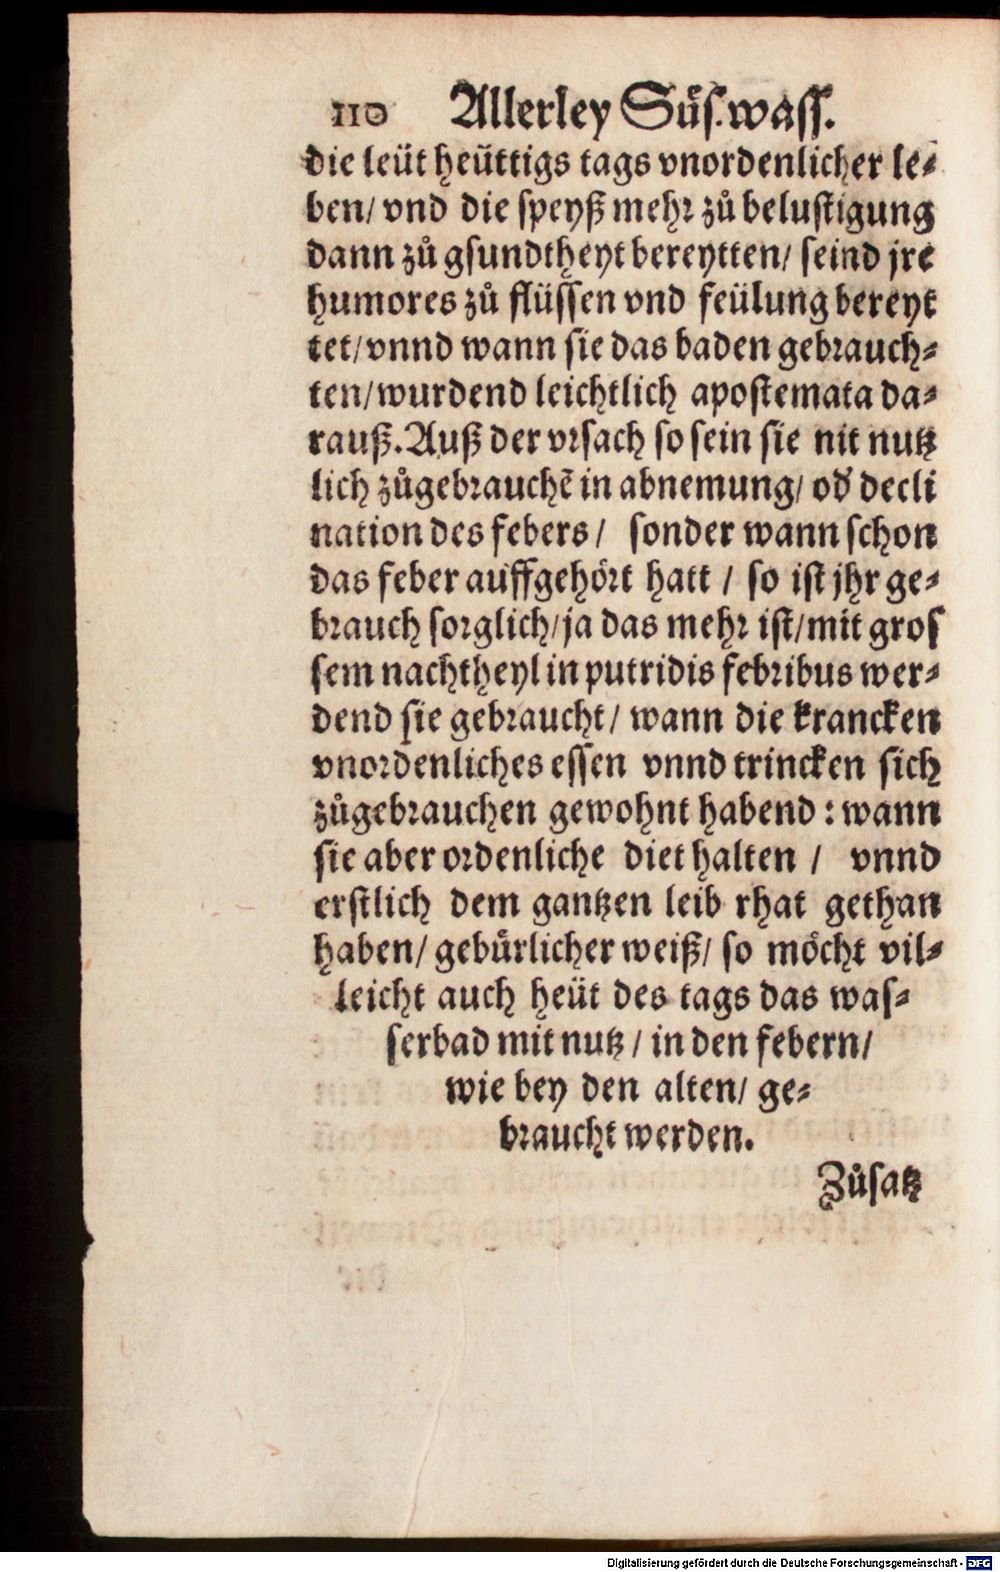 110 Allerley Süſ.waſſ.
die leüt heüttigs tags vnordenlicher le⸗
ben/ vnd die ſpeyß mehr zů beluſtigung
dann zů gſundtheyt bereytten/ ſeind jre
humores zů flüſſen vnd feülung bereyt
tet/vnnd wann ſie das baden gebrauch⸗
ten/wurdend leichtlich apoſtemata da⸗
rauß.Auß der vrſach ſo ſein ſie nit nutz
lich zůgebrauchē in abnemung/ od' decli
nation des febers/ ſonder wann ſchon
das feber auffgehört hatt / ſo iſt jhr ge⸗
brauch ſorglich/ja das mehr iſt/mit groſ
ſem nachtheyl in putridis febribus wer⸗
dend ſie gebraucht/ wann die krancken
vnordenliches eſſen vnnd trincken ſich
zůgebrauchen gewohnt habend : wann
ſie aber ordenliche diet halten / vnnd
erſtlich dem gantzen leib rhat gethan
haben/ gebürlicher weiß/ ſo möcht vil⸗
leicht auch heüt des tags das waſ⸗
ſerbad mit nutz / in den febern/
wie bey den alten/ ge⸗
braucht werden.
Zůſatz
Digitalisierung gefördert durch die Deutsche Forschungsgemeinschaft - DFG